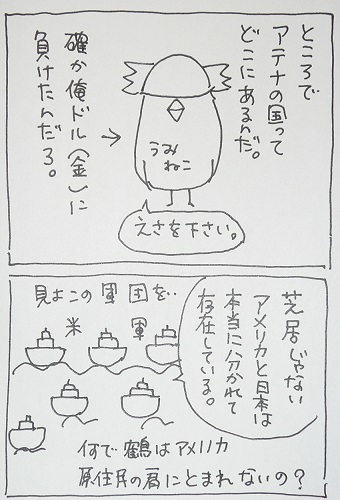 ところで
アテナの国って
どこにあるんだ。
確か俺ドル(金)に
負けたんだろ。
うみ
ねこ
えさを下さい。
芝居じゃない
アメリカと日本は
本当に分かれて
存在している。
見よこの軍団を‥
米軍
何で鶴はアメリカ
原住民の肩にとまれないの？